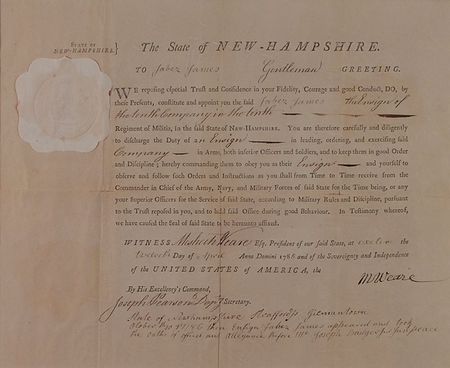 STATE OF
NEW-HAMPSHIRE. }
The State of NEW-HAMPSHIRE.
TO Jabez James Gentleman GREETING.
WE reposing especial Trust and Confidence in your Fidelity, Courage and good Conduct, DO, by
these Presents, constitute and appoint you the said Jabez James the Ensign of
the tenth Company in the tenth
Regiment of Militia, in the said State of NEW-HAMPSHIRE. You are therefore carefully and diligently
to discharge the Duty of an Ensign in leading, ordering, and exercising said
Company in Arms, both inferior Officers and Soldiers, and to keep them in good Order
and Discipline; hereby commanding them to obey you as their Ensign and yourself to
observe and follow such Orders and Instructions as you shall from Time to Time receive from the
Commander in Chief of the Army, Navy, and Military Forces of said State for the Time being, or any
your Superior Officers for the Service of said State, according to Military Rules and Discipline, pursuant
to the Trust reposed in you, and to hold said Office during good Behaviour. In Testimony whereof,
we have caused the Seal of said State to be hereunto affixed.
WITNESS Meshech Weare Esq. President of our said State, at Exeter the
Day of April Anno Domini 1785 and of the Sovereignty and Independence
of the UNITED STATES of AMERICA, the
M Weare
By His Excellency's Command,
Joseph Pearson Depy Secretary.
State of Newhampshire Strafford ss Gilmantown
1786 then Ensign Jabez James apleared and took
the oaths of office and allegiance Before Me Joseph Badger Jus peace